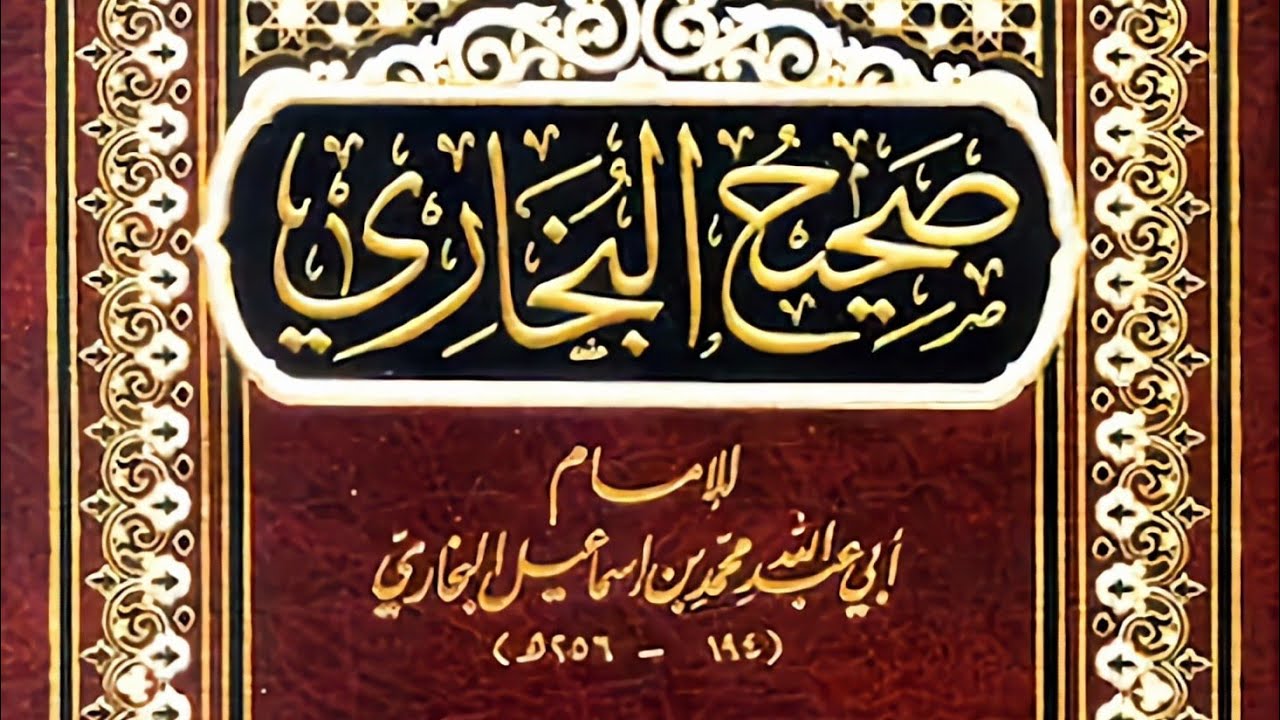 صَحِيحُ البُخَارِي
للإمام
أبي عبد الله محمد بن اسماعيل البخاري
(١٩٤ - ٢٥٦هـ)